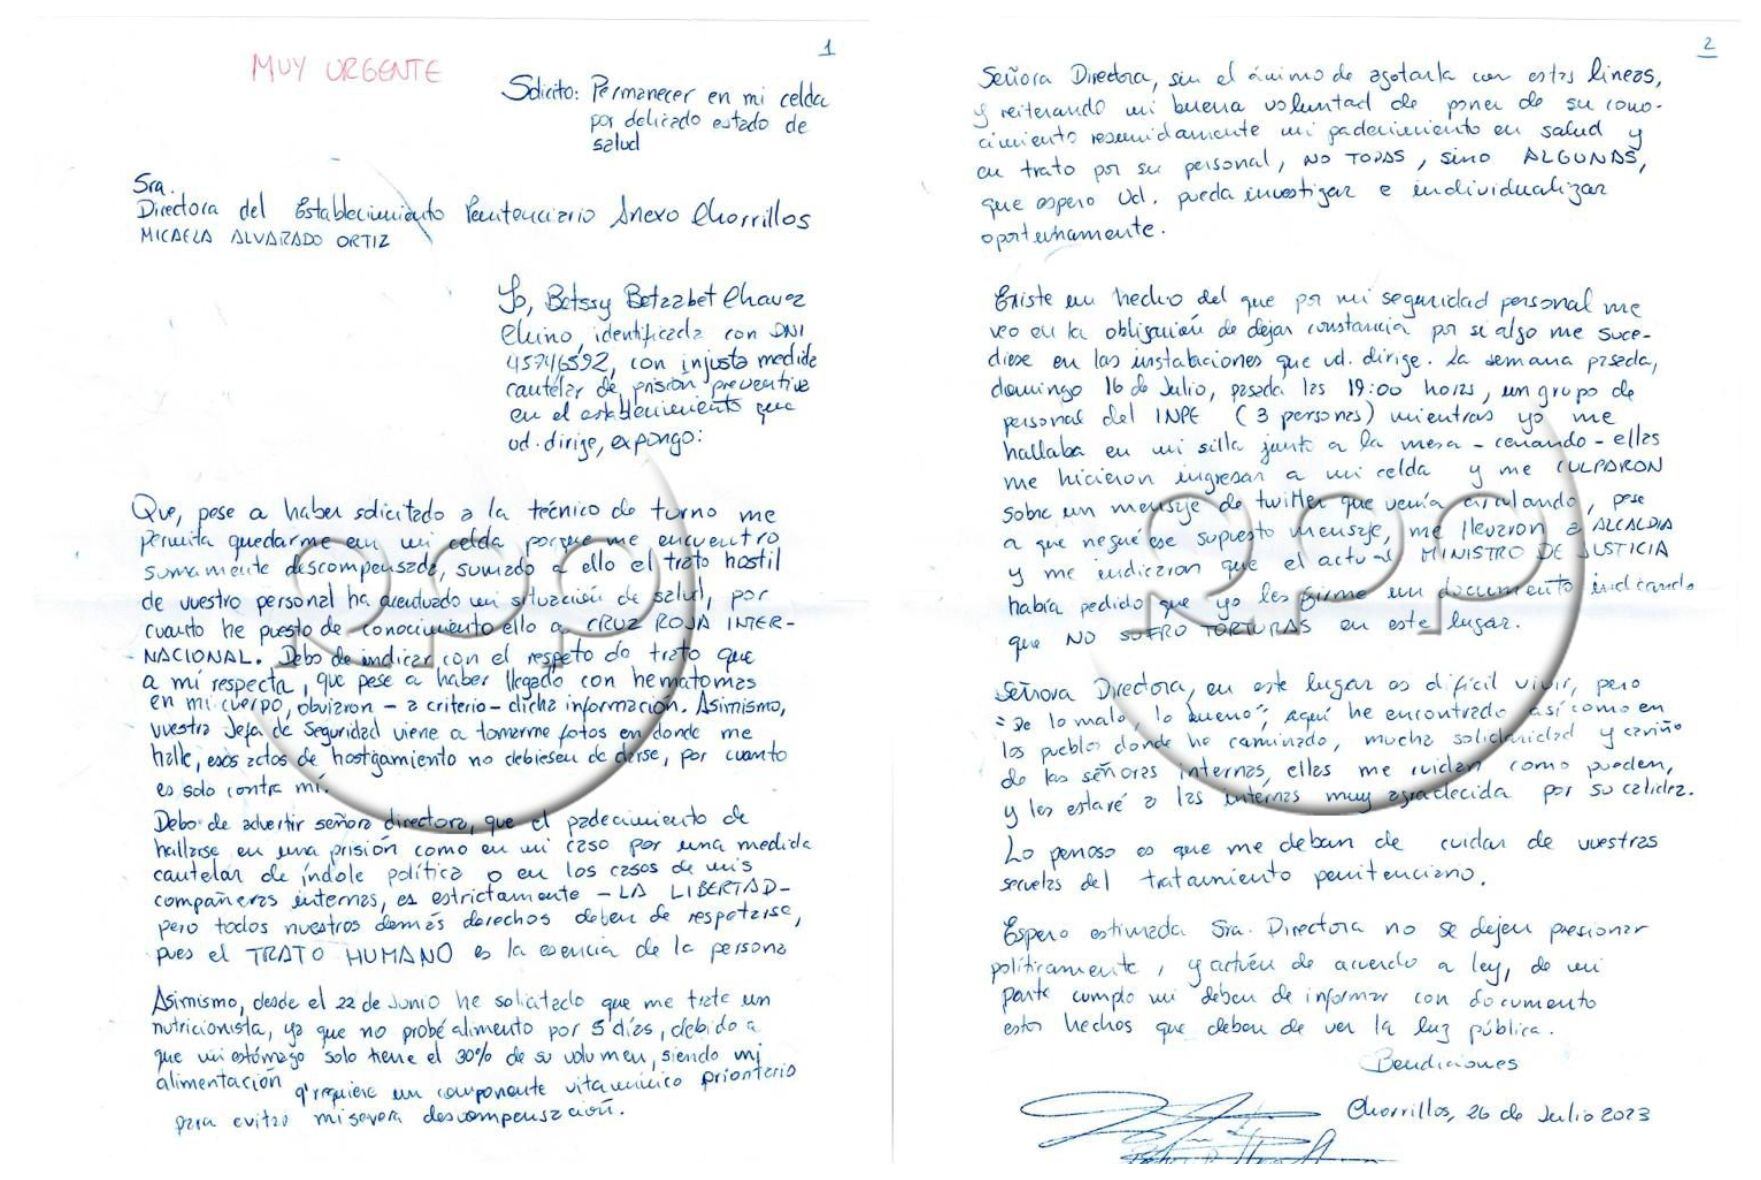 1
MUY URGENTE
Solicito: Permanecer en mi celda
por delicado estado de
salud
Sra.
Directora del Establecimiento Penitenciario Anexo Chorrillos
MICAELA ALVARADO ORTIZ
Yo, Betssy Betzabet Chavez
Chino, identificada con DNI
45746592, con injusta medida
cautelar de prisión preventiva
en el establecimiento que
ud. dirige, expongo:
Que, pese a haber solicitado a la técnico de turno me
permita quedarme en mi celda porque me encuentro
sumamente descompensada, sumado a ello el trato hostil
de vuestro personal ha acentuado mi situación de salud, por
cuanto he puesto de conocimiento ello a CRUZ ROJA INTER-
NACIONAL. Debo de indicar con el respeto do trato que
a mí respecta, que pese a haber llegado con hematomas
en mi cuerpo, obviaron - a criterio - dicha información. Asimismo,
vuestra Jefa de Seguridad viene a tomarme fotos en donde me
halle, esos actos de hostigamiento no debiesen de darse, por cuanto
es solo contra mí.
Debo de advertir señora directora, que el padecimiento de
hallarse en una prisión como en mi caso por una medida
cautelar de índole política o en los casos de mis
compañeras internas, es estrictamente - LA LIBERTAD -
pero todos nuestros demás derechos deben de respetarse,
pues el TRATO HUMANO es la esencia de la persona
Asimismo, desde el 22 de Junio he solicitado que me trate un
nutricionista, ya que no probé alimento por 5 días, debido a
que mi estómago solo tiene el 30% de su volumen, siendo mi
alimentación q' requiere un componente vitamínico prioritario
para evitar mi severa descompensación.
2
Señora Directora, sin el ánimo de agotarla con estas lineas,
y reiterando mi buena voluntad de poner de su cono-
cimiento resumidamente mi padecimiento en salud y
en trato por su personal, NO TODAS, sino ALGUNAS,
que espero Ud. pueda investigar e individualizar
oportunamente.
Existe un hecho del que por mi seguridad personal me
veo en la obligación de dejar constancia por si algo me suce-
diese en las instalaciones que ud. dirige. La semana pasada,
domingo 16 de Julio, pasada las 19:00 horas, un grupo de
personal del INPE (3 personas) mientras yo me
hallaba en mi silla junto a la mesa - cenando - ellas
me hicieron ingresar a mi celda y me CULPARON
sobre un mensaje de twitter que venía circulando, pese
a que negué ese supuesto mensaje, me llevaron a ALCALDIA
y me indicaron que el actual MINISTRO DE JUSTICIA
había pedido que yo les firme un documento indicando
que NO SUFRO TORTURAS en este lugar.
Señora Directora, en este lugar es difícil vivir, pero
"De lo malo, lo bueno", aquí he encontrado así como en
los pueblos donde he caminado, mucha solidaridad y cariño
de las señoras internas, ellas me cuidan como pueden,
y les estaré a las internas muy agradecida por su calidez.
Lo penoso es que me deban de cuidar de vuestras
secuelas del tratamiento penitenciario.
Espero estimada Sra. Directora no se dejen presionar
políticamente, y actúen de acuerdo a ley, de mi
parte cumplo mi deber de informar con documento
estos hechos que deben de ver la luz pública.
Bendiciones
Chorrillos, 26 de Julio 2023